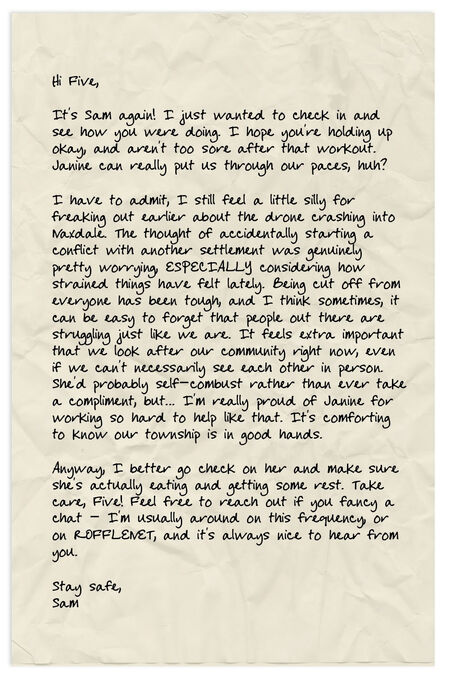 Hi Five,
It's Sam again! I just wanted to check in and
see how you were doing. I hope you're holding up
okay, and aren't too sore after that workout.
Janine can really put us through our paces, huh?
I have to admit, I still feel a little silly for
freaking out earlier about the drone crashing into
Naxdale. The thought of accidentally starting a
conflict with another settlement was genuinely
pretty worrying, ESPECIALLY considering how
strained things have felt lately. Being cut off from
everyone has been tough, and I think sometimes, it
can be easy to forget that people out there are
struggling just like we are. It feels extra important
that we look after our community right now, even
if we can't necessarily see each other in person.
She'd probably self-combust rather than ever take
a compliment, but... I'm really proud of Janine for
working so hard to help like that. It's comforting
to know our township is in good hands.
Anyway, I better go check on her and make sure
she's actually eating and getting some rest. Take
care, Five! Feel free to reach out if you fancy a
chat - I'm usually around on this frequency, or
on ROFFLENET, and it's always nice to hear from
you.
Stay safe,
Sam